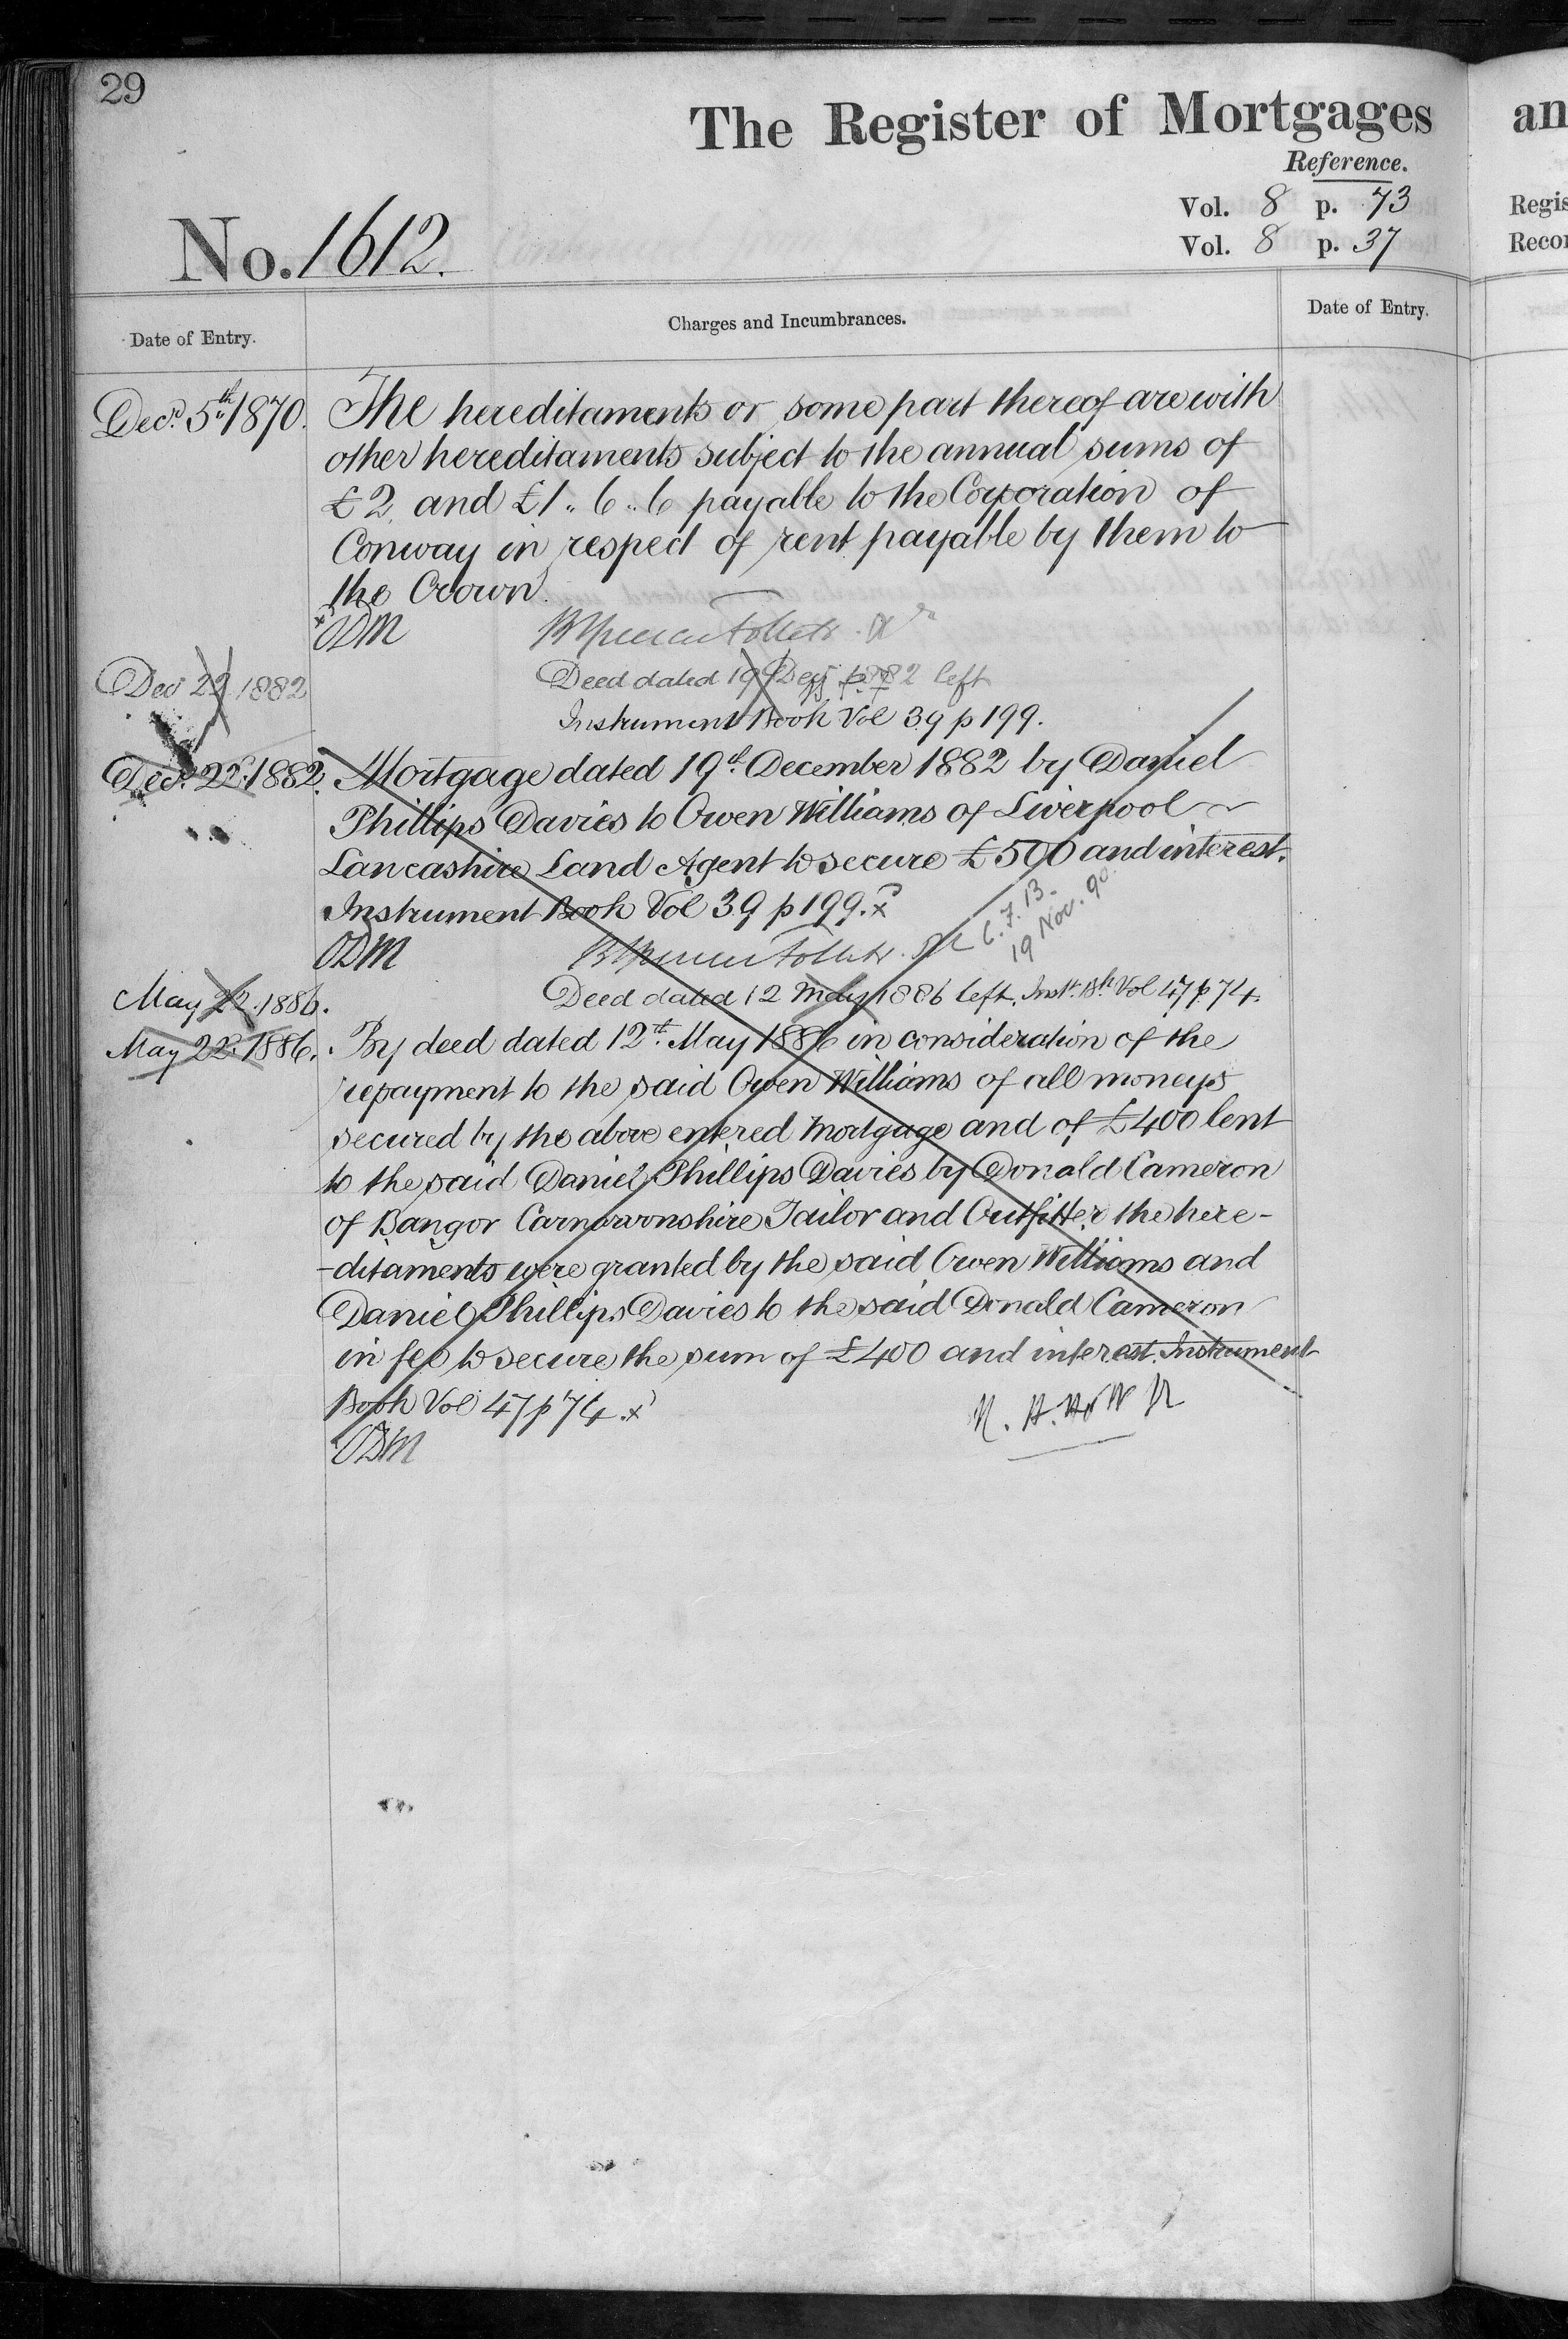 29
The Register of Mortgages
Reference.
Vol. 8 p. 73
Vol. 8 p. 37
No. 1612.
Date of Entry.
Charges and Incumbrances.
Date of Entry.
Decr. 5th 1870.
The hereditaments or some part thereof are with
other hereditaments subject to the annual sums of
£2 and £1.. 6..6 payable to the Corporation of
Conway in respect of rent payable by them to
the Crown.
ODM
Dec 22 1882
Deed dated 19 Dec 1882 left
Instrument Book Vol 39 p 199.
Decr. 22d. 1882.
Mortgage dated 19th. December 1882 by Daniel
Phillips Davies to Owen Williams of Liverpool
Lancashire Land Agent to secure £500 and interest.
Instrument Book Vol 39 p 199. x
ODM
C. 7. 13.
19 Nov. 90.
May 22. 1886.
Deed dated 12 May 1886 left. Inst. Bk Vol 47 p 74.
May 22d. 1886.
By deed dated 12th. May 1886 in consideration of the
repayment to the said Owen Williams of all moneys
secured by the above entered Mortgage and of £400 lent
to the said Daniel Phillips Davies by Donald Cameron
of Bangor Carnarvonshire Tailor and Outfitter the here-
-ditaments were granted by the said Owen Williams and
Daniel Phillips Davies to the said Donald Cameron
in fee to secure the sum of £400 and interest. Instrument
Book Vol 47 p 74. x
ODM
an
Regis
Recor